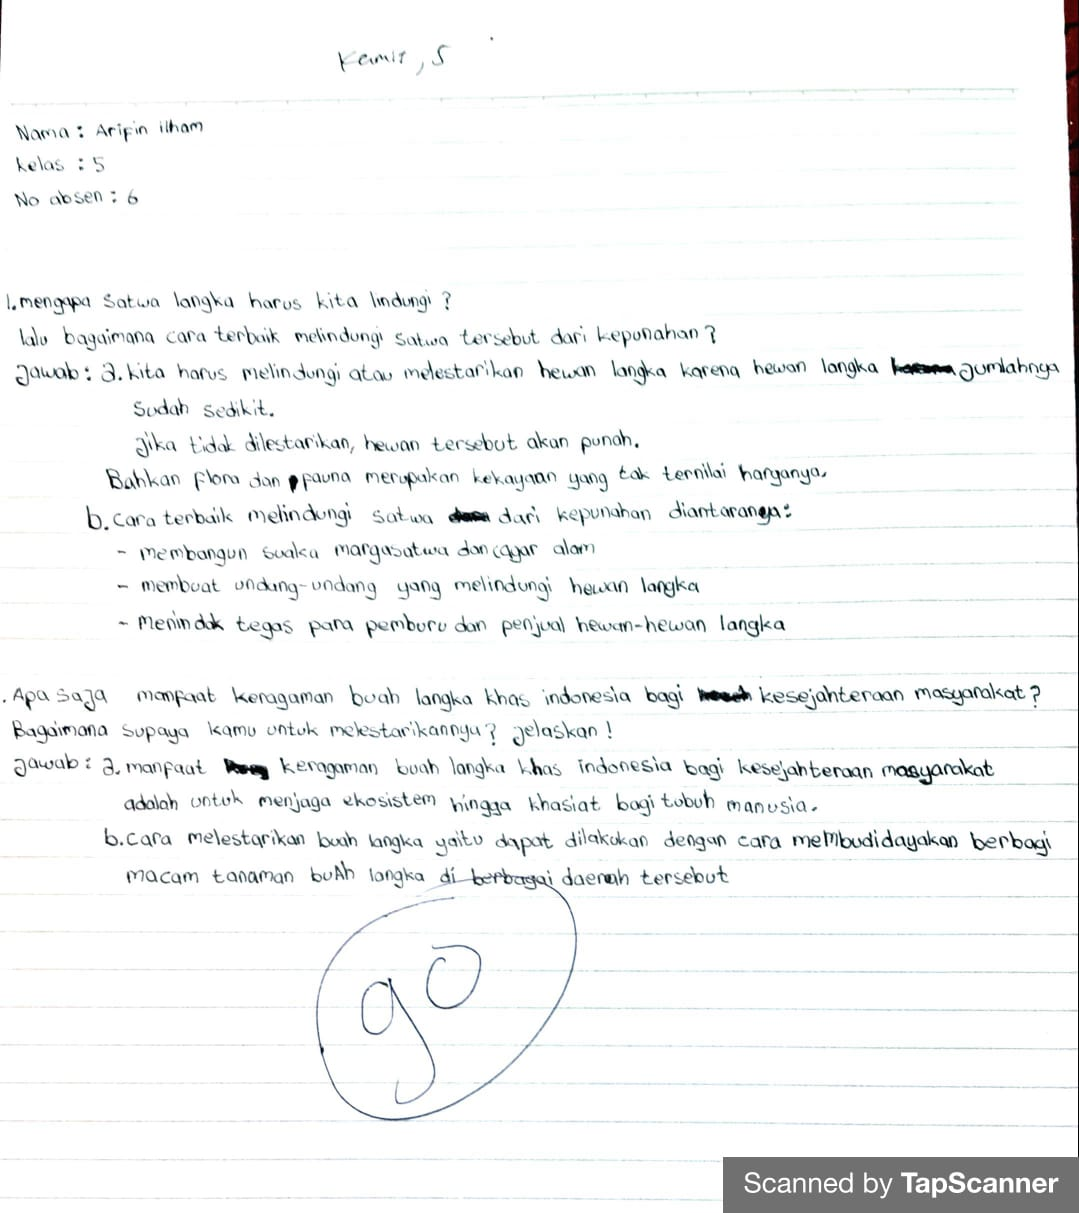 Kamis, 5
Nama : Aripin ilham
kelas : 5
No absen : 6
1. mengapa satwa langka harus kita lindungi ?
lalu bagaimana cara terbaik melindungi satwa tersebut dari kepunahan ?
Jawab : a. kita harus melindungi atau melestarikan hewan langka karena hewan langka jumlahnya
sudah sedikit.
Jika tidak dilestarikan, hewan tersebut akan punah.
Bahkan flora dan fauna merupakan kekayaan yang tak ternilai harganya.
b. cara terbaik melindungi satwa dari kepunahan diantaranya :
- membangun suaka margasatwa dan cagar alam
- membuat undang-undang yang melindungi hewan langka
- Menindak tegas para pemburu dan penjual hewan-hewan langka
. Apa saja manfaat keragaman buah langka khas indonesia bagi kesejahteraan masyarakat ?
Bagaimana supaya kamu untuk melestarikannya ? Jelaskan !
Jawab : a. manfaat keragaman buah langka khas indonesia bagi kesejahteraan masyarakat
adalah untuk menjaga ekosistem hingga khasiat bagi tubuh manusia.
b. cara melestarikan buah langka yaitu dapat dilakukan dengan cara membudidayakan berbagi
macam tanaman buAh langka di berbagai daerah tersebut
90
Scanned by TapScanner